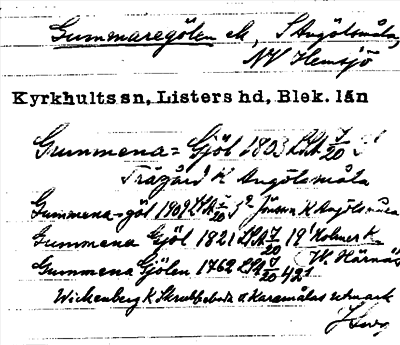 Gummaregölen S Angölsmåla,
NV Hemsjö
Kyrkhults sn, Listers hd, Blek. län
Gummena= Gjöl 1803 LSA 7/20
Trägård K Angölsmåla
Gummena-göl 1909 LSA 7/20 Jönsson K Angölsmåla
Gummena Gjöl 1821 LSA 7/20 19 Holmer K
Gummena Gjölen 1762 LSA 7/20 421 W. Härnäs
Wickenberg K Skrubbeboda o Karamålas utmark